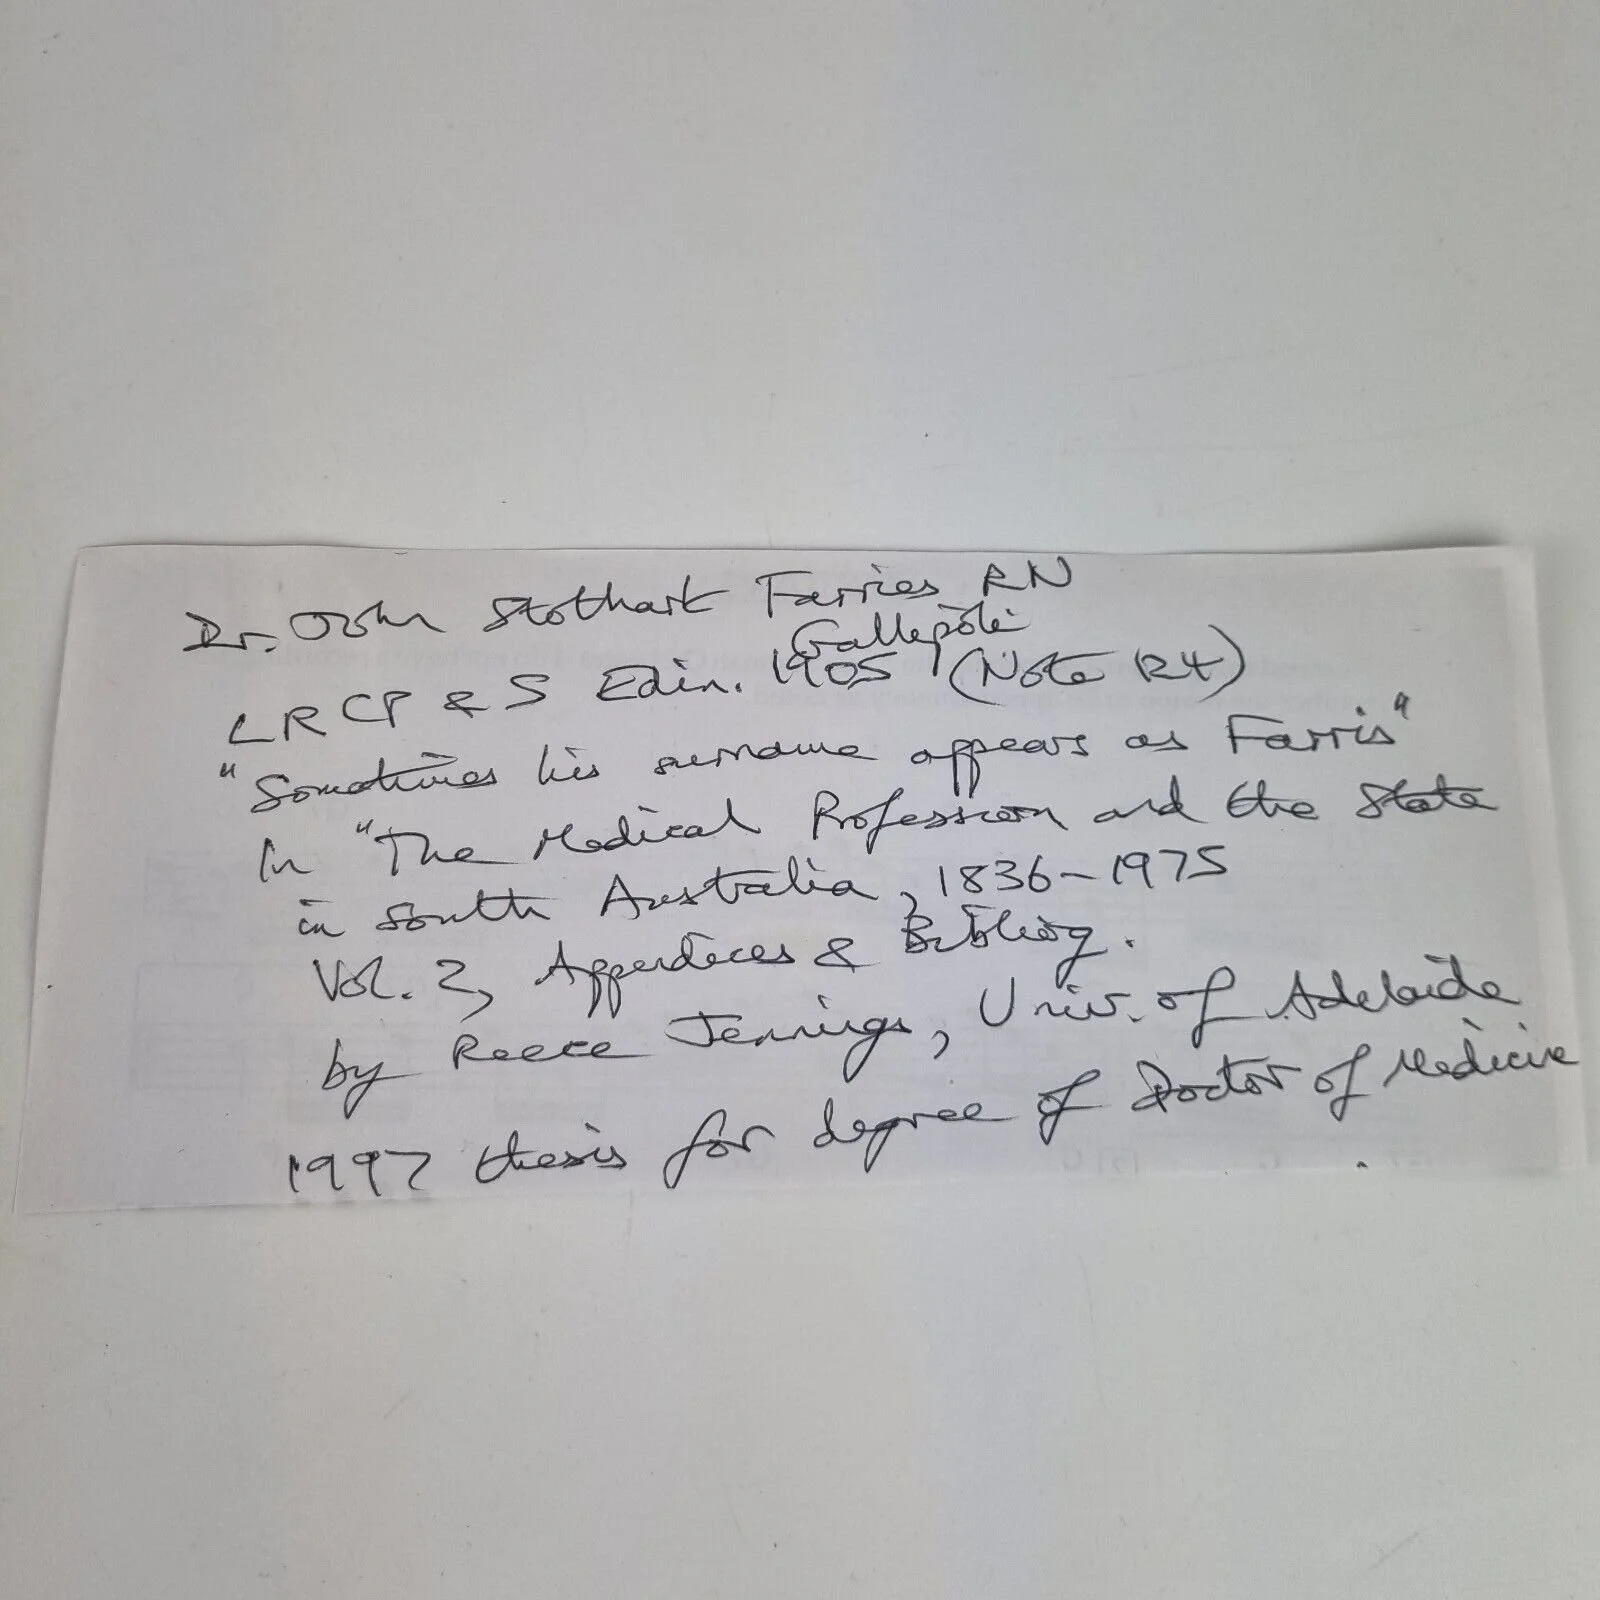 Dr. John Stothart Farries RN
Gallepoli
LRCP & S Edin. 1905 (Note R4)
"Sometimes his surname appears as Farris"
In "The Medical Profession and the State
in South Australia, 1836-1975
Vol. 2, Appendices & Bibliog.
by Reece Jennings, Univ. of Adelaide
1997 thesis for degree of Doctor of Medicine.